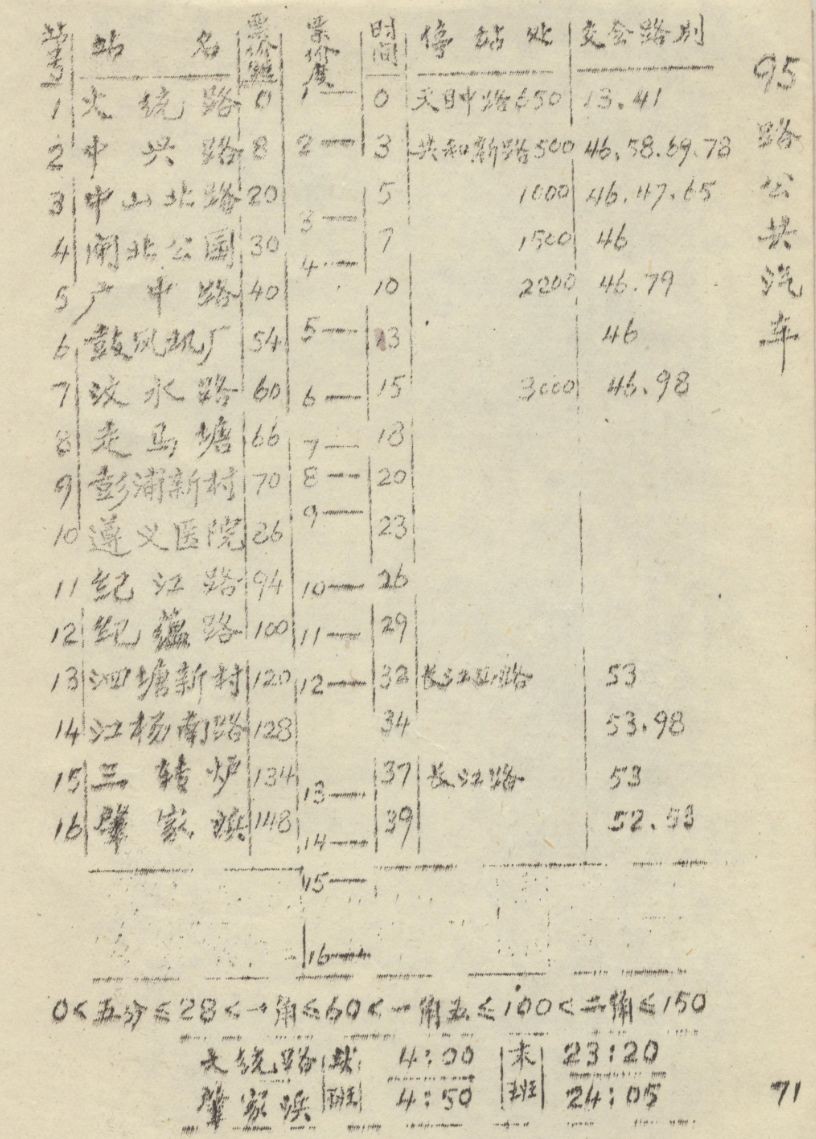 站号 站名 票价距 票价度 时间 停站处 交会路别
95路公共汽车
1 大统路 0 1— 0 天目中路650 13.41
2 中兴路 8 2— 3 共和新路500 46.58.69.78
3 中山北路 20 3— 5 1000 46.47.65
4 闸北公园 30 4— 7 1500 46
5 广中路 40 10 2200 46.79
6 鼓风机厂 54 5— 13 46
7 汶水路 60 6— 15 3000 46.98
8 走马塘 66 7— 18
9 彭浦新村 70 8— 20
10 遵义医院 9— 23
11 纪江路 94 10— 26
12 纪蕴路 100 11— 29
13 泗塘新村 120 12— 32 长江西路 53
14 江杨南路 128 34 53.98
15 三转炉 134 13— 37 长江路 53
16 肇家浜 148 14— 39 52.53
15—
16—
0<五分≤28<一角≤60<一角五≤100<二角≤150
大统路 头班 4:00 末班 23:20
肇家浜 4:50 24:05
71